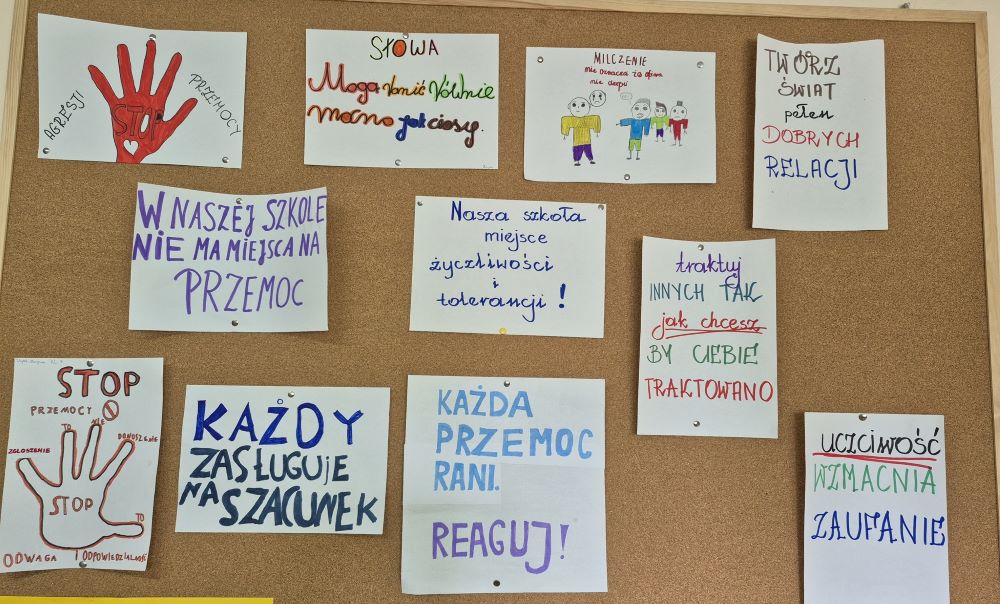 AGRESJI
STOP
PRZEMOCY
SŁOWA
Mogą ranić Równie
mocno jak ciosy.
MILCZENIE
nie oznacza że ofiara
nie cierpi
TWÓRZ
ŚWIAT
pełen
DOBRYCH
RELACJI
W NASZEJ SZKOLE
NIE MA MIEJSCA NA
PRZEMOC
Nasza szkoła
miejsce
życzliwości
i
tolerancji !
traktuj
INNYCH TAK
jak chcesz
BY CIEBIE
TRAKTOWANO
STOP
PRZEMOCY
TO NIE
DONOSZENIE
ZGŁOSZENIE
STOP
TO
ODWAGA I ODPOWIEDZIALNOŚĆ
KAŻDY
ZASŁUGUJE
NA SZACUNEK
KAŻDA
PRZEMOC
RANI.
REAGUJ!
UCZCIWOŚĆ
WZMACNIA
ZAUFANIE